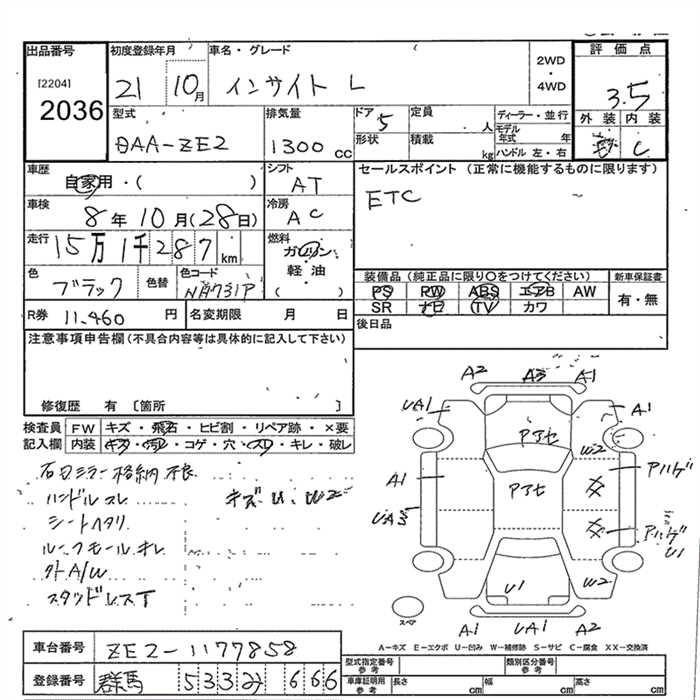 出品番号 初度登録年月 車名・グレード 2WD・4WD 評価点
[2204] 2036 21 10月 インサイト L 3.5
型式 排気量 ドア 5 定員 人 ディーラー・並行 外装 内装
DAA-ZE2 1300cc 形状 積載 kg モデル年式 年 ハンドル 左・右 C
車歴 自家用・( ) シフト AT セールスポイント (正常に機能するものに限ります)
車検 8年10月(28日) 冷房 AC ETC
走行 15万1千287km 燃料 ガソリン・軽油( )
色 ブラック 色替 色コード NH731P 装備品(純正品に限り○をつけてください) 新車保証書
PS PW ABS エアB AW 有・無
SR ナビ TV カワ
R券 11,460円 名変期限 月 日 後日品
注意事項申告欄(不具合内容等は具体的に記入して下さい)
修復歴 有 〔箇所 〕
検査員 FW キズ・飛石・ヒビ割・リペア跡・×要
記入欄 内装 キズ・汚レ・コゲ・穴・スレ・キレ・破レ
右ミラー格納不良
ハンドルスレ キズ U、W2
シートヘタリ
ルーフモールキレ
社外A/W
スタッドレスT
A2 A3 A1
UA1 A1
アセ W2
A1 アセ アハゲ
UA3 アハゲ
U1
U1 W2
スペア A2 UA1 A1
A-キズ E-エクボ U-凹み W-補修跡 S-サビ C-腐食 XX-交換済
車台番号 ZE2-1177858
型式指定番号 参考 類別区分番号 参考
登録番号 群馬 533 み 666
車庫証明用 参考 長さ cm 幅 cm 高さ cm